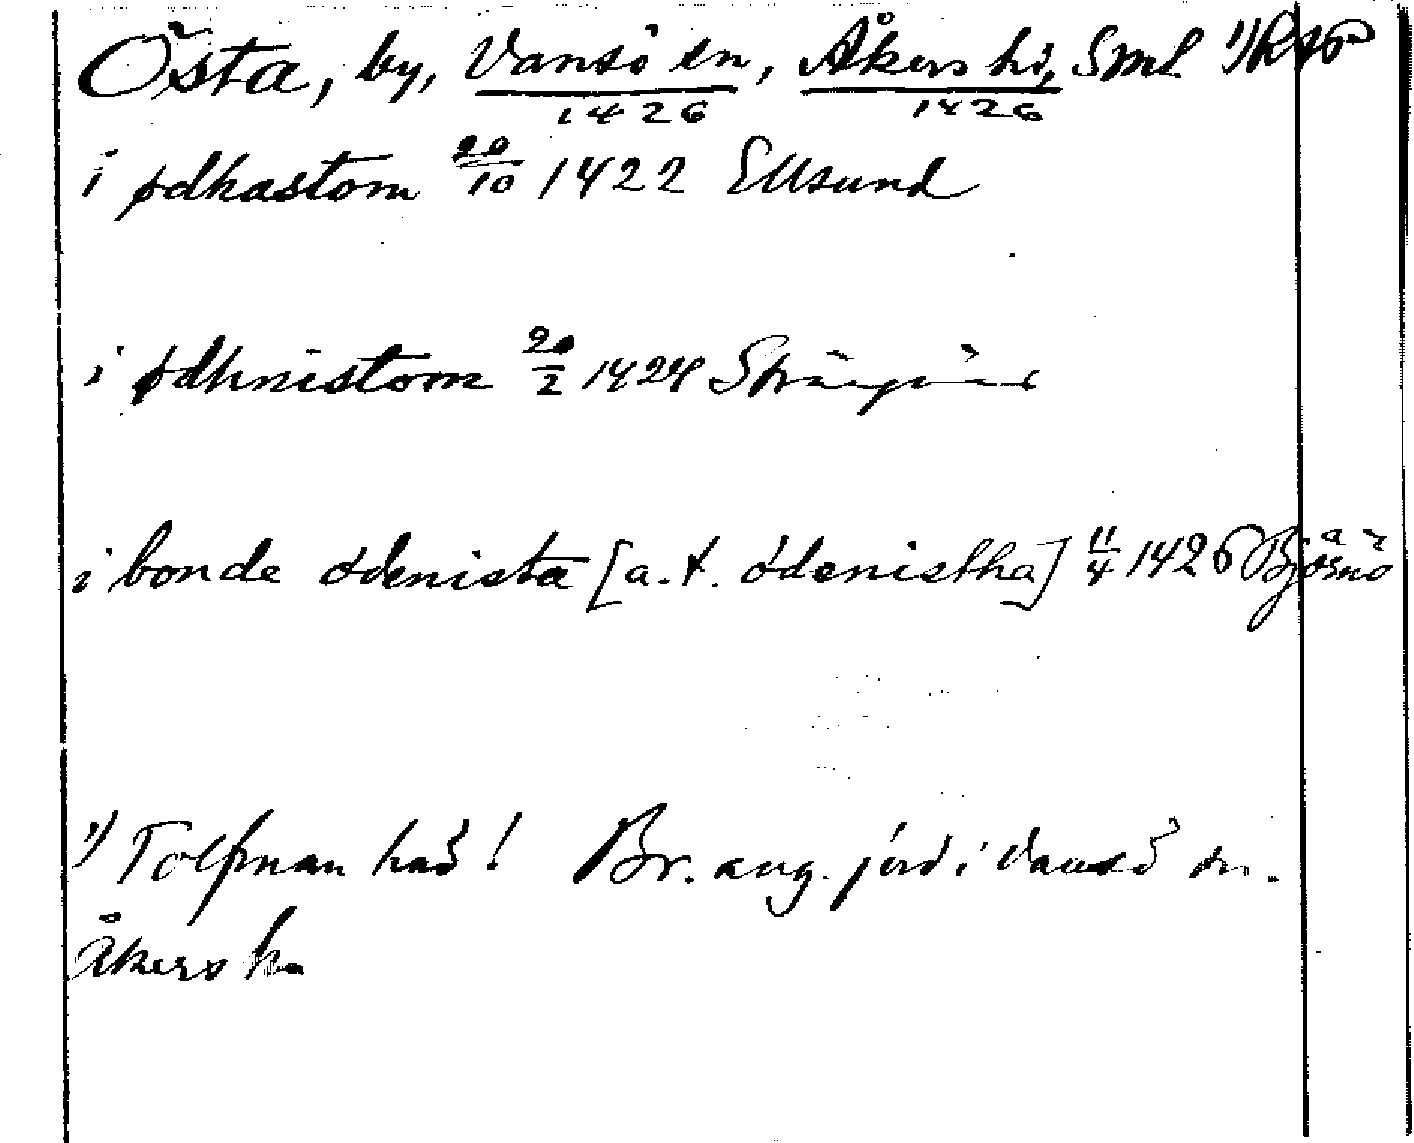 Östa, by, Vansö sn, Åkers hd, Sml 1) RAp
1426 1426
i ødhastom 20/10 1422 Ellsund
i ødhnistom 20/2 1424 Strängnäs
i bonde ödenista [a.t. ödenistha] 11/4 1426 Björnö
1) Tolfman had! Br. ang. jord i Vansö sn.
Åkers hd